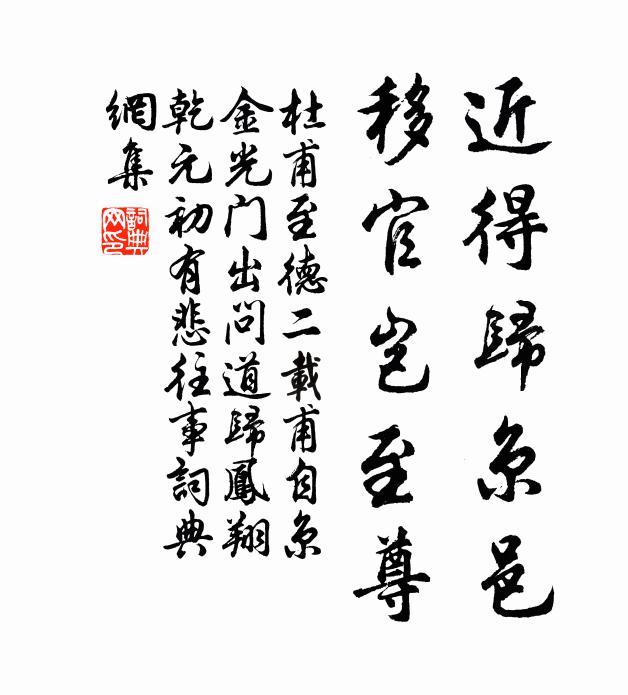 近得歸京邑
移官岂至尊
杜甫至德二載甫自京
金光门出問道歸鳳翔
乾元初有悲往事詞典
網集
詞典
网印